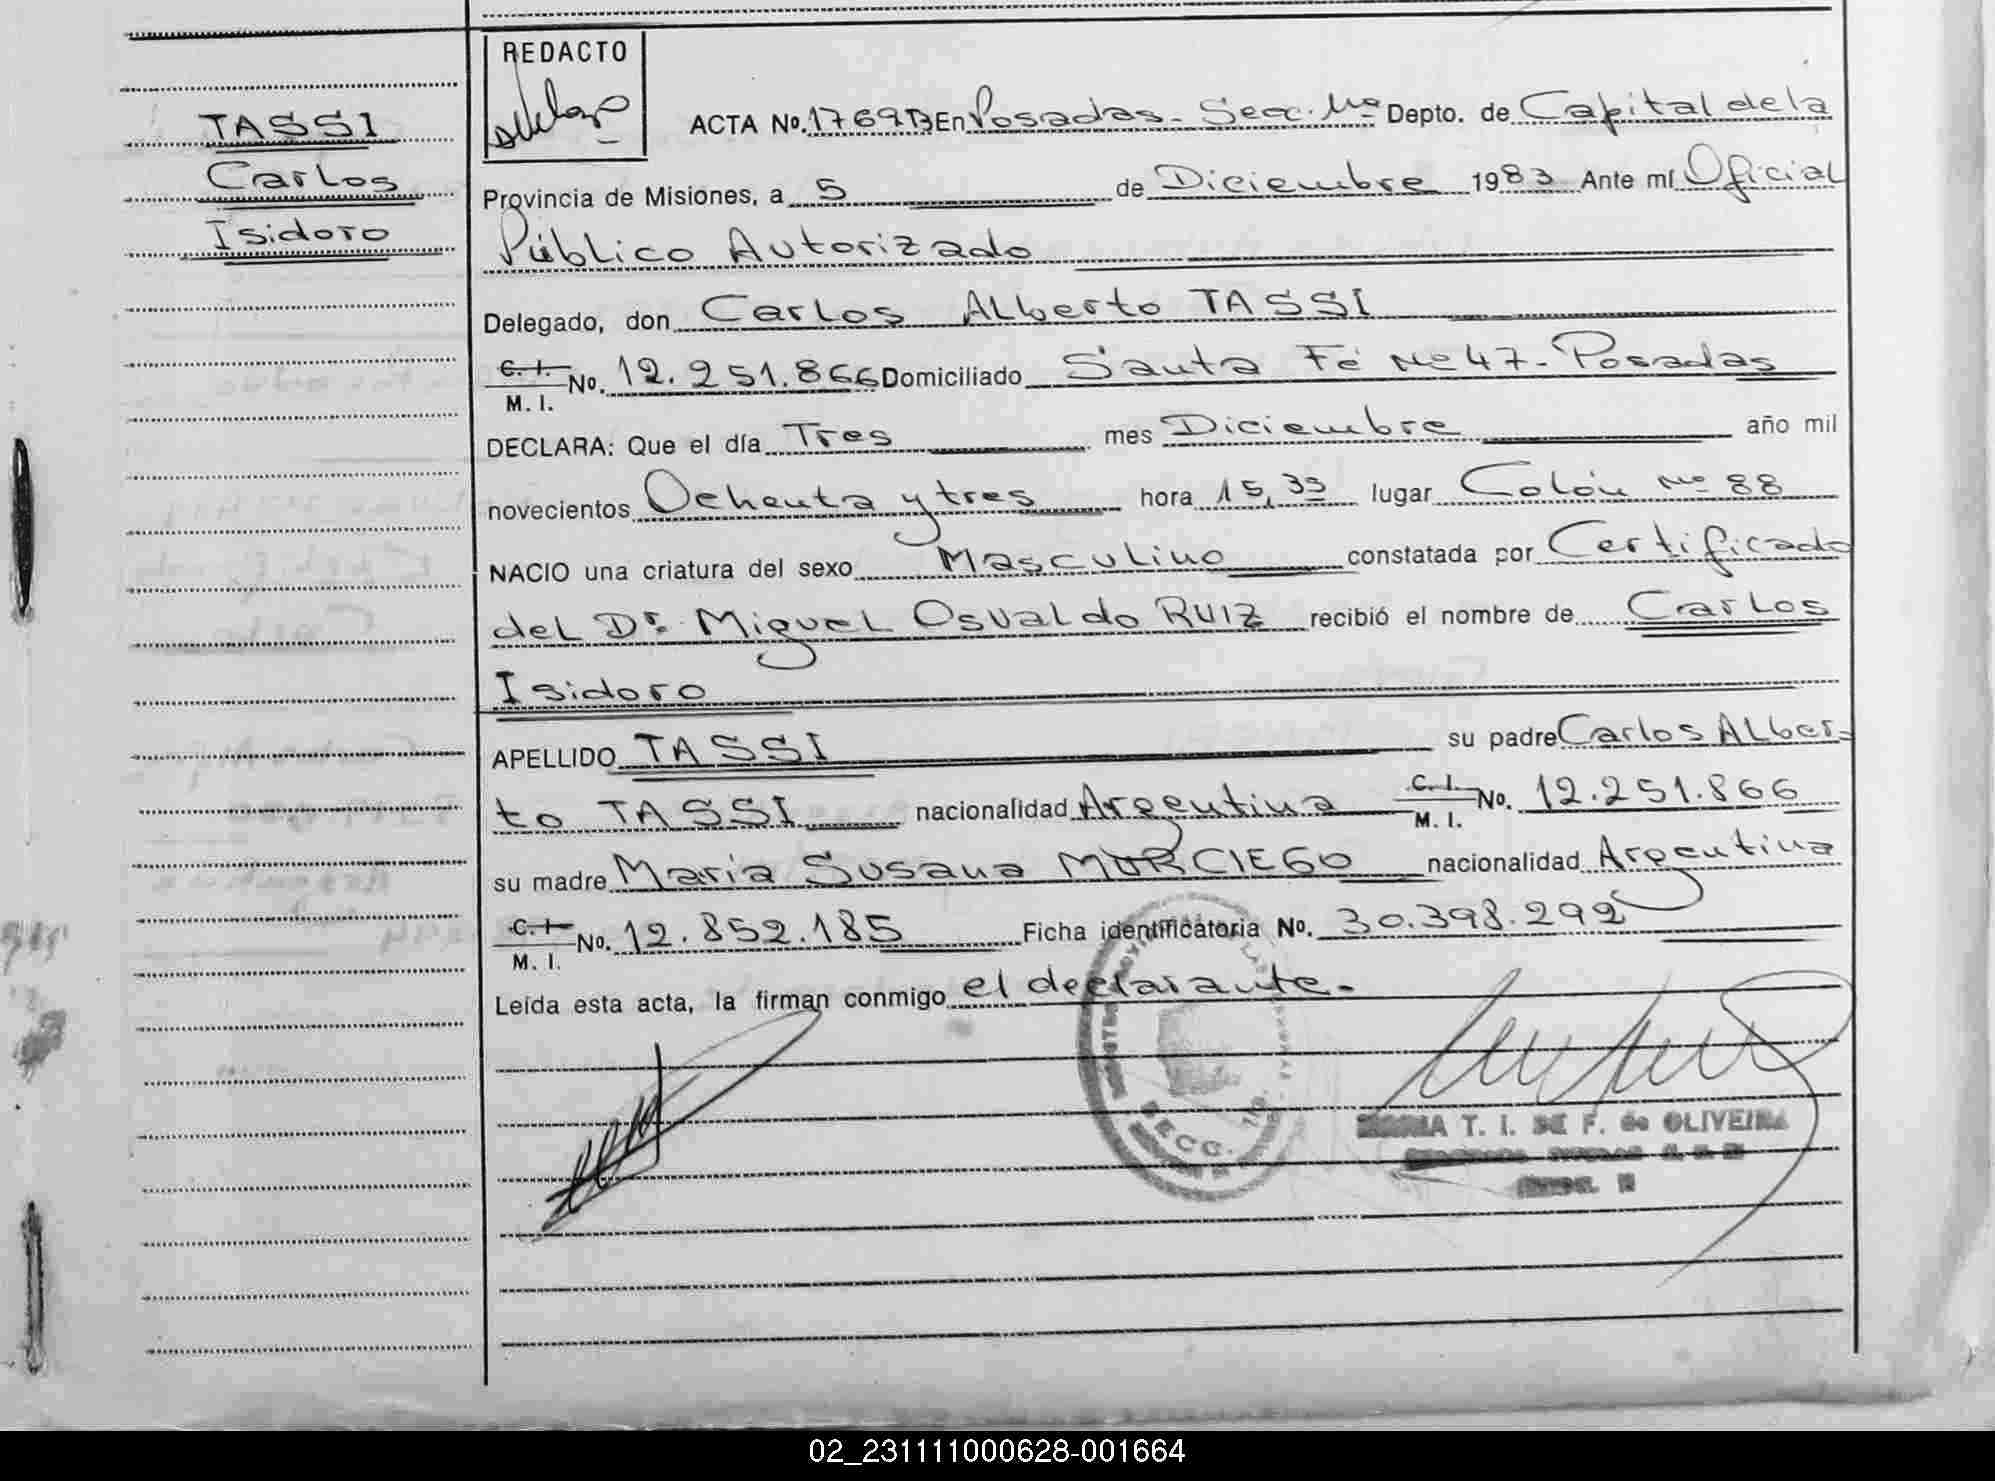 TASSI
Carlos
Isidoro
REDACTO
ACTA No. 1769 B En Posadas - Secc. 11ª Depto. de Capital de la
Provincia de Misiones, a 5 de Diciembre 1983 Ante mí Oficial
Público Autorizado
Delegado, don Carlos Alberto TASSI
C. I.
M. I. No. 12.251.866 Domiciliado Santa Fé Nº 47 - Posadas
DECLARA: Que el día Tres mes Diciembre año mil
novecientos Ochenta y tres hora 15,35 lugar Colón Nº 88
NACIO una criatura del sexo Masculino constatada por Certificado
del Dr. Miguel Osvaldo RUIZ recibió el nombre de Carlos
Isidoro
APELLIDO TASSI su padre Carlos Alber-
to TASSI nacionalidad Argentina C. I.
M. I. No. 12.251.866
su madre María Susana MURCIEGO nacionalidad Argentina
C. I.
M. I. No. 12.852.185 Ficha identificatoria No. 30.398.292
Leída esta acta, la firman conmigo el declarante.-
SECC.
MARIA T. I. DE F. de OLIVEIRA
02_231111000628-001664